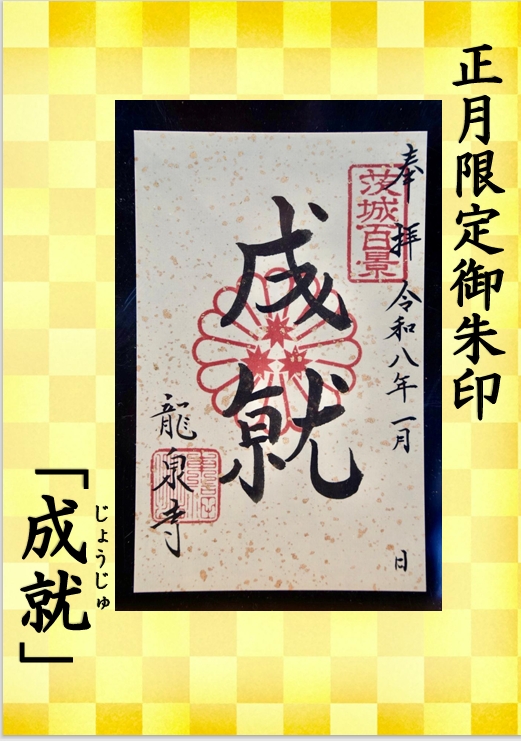 正月限定御朱印
奉拝 令和八年 一月 日
茨城百景
成就
龍泉寺
「成就」
じょうじゅ